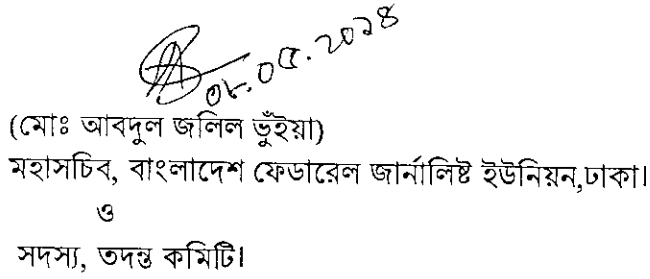 ০৮.০৫.২০১৪
(মোঃ আবদুল জলিল ভুঁইয়া)
মহাসচিব, বাংলাদেশ ফেডারেল জার্নালিষ্ট ইউনিয়ন,ঢাকা।
ও
সদস্য, তদন্ত কমিটি।